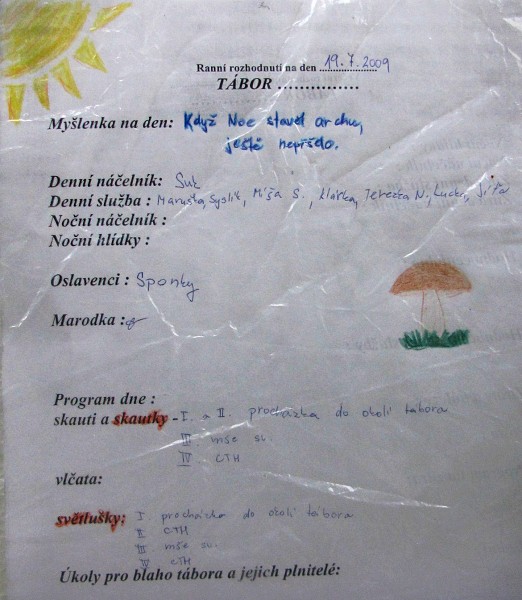 Ranní rozhodnutí na den 19.7.2009
TÁBOR ...............
Myšlenka na den: Když Noe stavěl archu,
ještě nepršelo.
Denní náčelník: Suk
Denní služba : Maruska, Syslík, Míša S., Klárka, Terezka N., Lucka,
Noční náčelník :
Noční hlídky :
Oslavenci : Sponky
Marodka :
Program dne :
skauti a skautky - I. a II. procházka do okolí tábora
III mše sv.
IV CTH
vlčata:
světlušky: I. procházka do okolí tábora
II CTH
III mše sv.
IV CTH
Úkoly pro blaho tábora a jejich plnitelé: